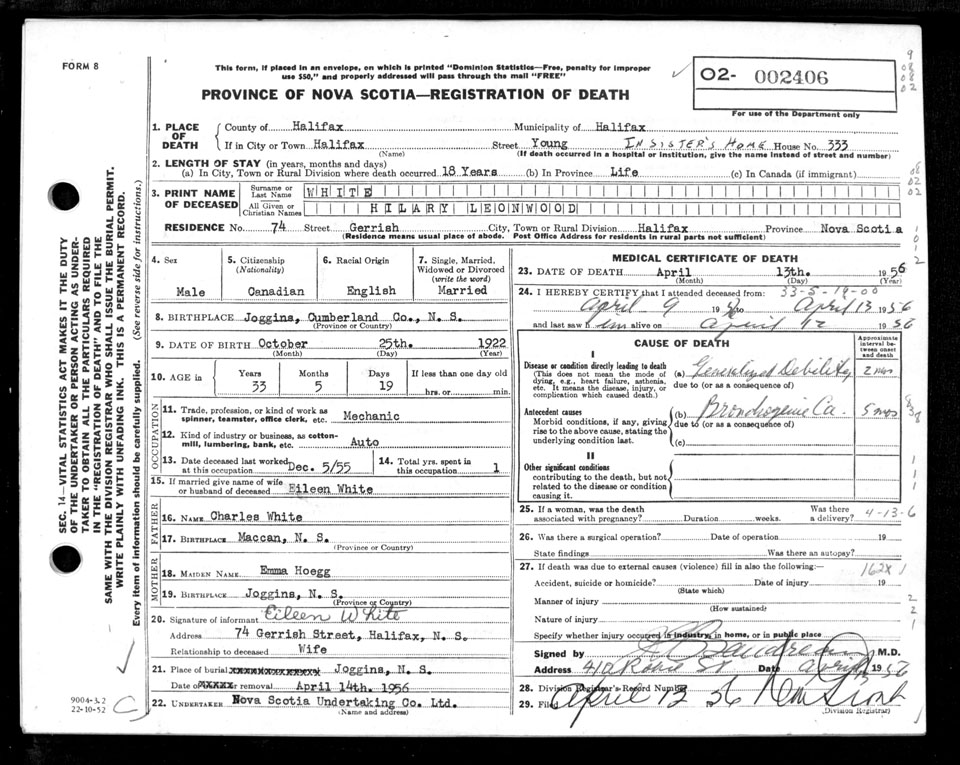 FORM 8
This form, if placed in an envelope, on which is printed "Dominion Statistics—Free, penalty for improper
use $50," and properly addressed will pass through the mail "FREE"
PROVINCE OF NOVA SCOTIA—REGISTRATION OF DEATH
02- 002406
For use of the Department only
9
08
08
02
1. PLACE OF DEATH
County of Halifax Municipality of Halifax
If in City or Town Halifax Street Young IN SISTER'S HOME House No. 333
(Name) (If death occurred in a hospital or institution, give the name instead of street and number)
2. LENGTH OF STAY (in years, months and days)
(a) In City, Town or Rural Division where death occurred 18 Years (b) In Province Life (c) In Canada (if immigrant)
08
02
02
3. PRINT NAME OF DECEASED
Surname or Last Name WHITE
All Given or Christian Names HILARY LEONWOOD
RESIDENCE No. 74 Street Gerrish City, Town or Rural Division Halifax Province Nova Scotia
(Residence means usual place of abode. Post Office Address for residents in rural parts not sufficient)
1
0
1
2
4. Sex
Male
5. Citizenship
(Nationality)
Canadian
6. Racial Origin
English
7. Single, Married,
Widowed or Divorced
(write the word)
Married
8. BIRTHPLACE Joggins, Cumberland Co., N. S.
(Province or Country)
9. DATE OF BIRTH October 25th. 1922
(Month) (Day) (Year)
10. AGE in
Years Months Days If less than one day old
33 5 19 hrs. or min.
OCCUPATION
11. Trade, profession, or kind of work as
spinner, teamster, office clerk, etc. Mechanic
12. Kind of industry or business, as cotton-
mill, lumbering, bank, etc. Auto
13. Date deceased last worked
at this occupation Dec. 5/55
14. Total yrs. spent in
this occupation 1
15. If married give name of wife
or husband of deceased Eileen White
FATHER
16. NAME Charles White
17. BIRTHPLACE Maccan, N. S.
(Province or Country)
MOTHER
18. MAIDEN NAME Emma Hoegg
19. BIRTHPLACE Joggins, N. S.
(Province or Country)
20. Signature of informant Eileen White
Address 74 Gerrish Street, Halifax, N. S.
Relationship to deceased Wife
21. Place of burial Joggins, N. S.
Date of or removal April 14th. 1956
22. UNDERTAKER Nova Scotia Undertaking Co. Ltd.
(Name and address)
MEDICAL CERTIFICATE OF DEATH
23. DATE OF DEATH April 13th. 1956
(Month) (Day) (Year)
33-5-19-00
24. I HEREBY CERTIFY that I attended deceased from
April 9 19 to April 13 1956
and last saw him alive on April 12 1956
CAUSE OF DEATH
Approximate
interval between
onset
and death
I
Disease or condition directly leading to death
(This does not mean the mode of
dying, e.g., heart failure, asthenia,
etc. It means the disease, injury, or
complication which caused death.)
(a) Generalized Debility 2 mos
due to (or as a consequence of)
Antecedent causes
Morbid conditions, if any, giving
rise to the above cause, stating the
underlying condition last.
(b) Bronchogenic Ca. 5 mos
due to (or as a consequence of)
(c)
II
Other significant conditions
contributing to the death, but not
related to the disease or condition
causing it.
25. If a woman, was the death
associated with pregnancy? Duration weeks.
Was there
a delivery?
4-13-6
26. Was there a surgical operation? Date of operation 19
State findings Was there an autopsy?
27. If death was due to external causes (violence) fill in also the following:—
162X 1
Accident, suicide or homicide? Date of injury 19
(State which)
Manner of injury
(How sustained)
Nature of injury
Specify whether injury occurred in industry, in home, or in public place
Signed by M.D.
Address 412 Robie St Date April 1956
28. Division Registrar's Record Number
29. Filed April 12 1956
(Division Registrar)
SEC. 14—VITAL STATISTICS ACT MAKES IT THE DUTY
OF THE UNDERTAKER OR PERSON ACTING AS UNDER-
TAKER TO OBTAIN ALL THE PARTICULARS REQUIRED
IN THE "REGISTRATION OF DEATH" AND TO FILE THE
SAME WITH THE DIVISION REGISTRAR WHO SHALL ISSUE THE BURIAL PERMIT.
WRITE PLAINLY WITH UNFADING INK. THIS IS A PERMANENT RECORD.
Every item of information should be carefully supplied. (See reverse side for instructions.)
9004-3.2
22-10-52
C